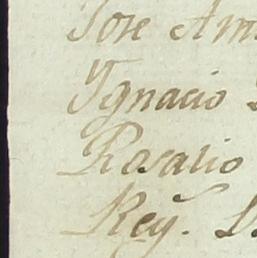 Jose Am
Ygnacio
Rosalio
Rey.